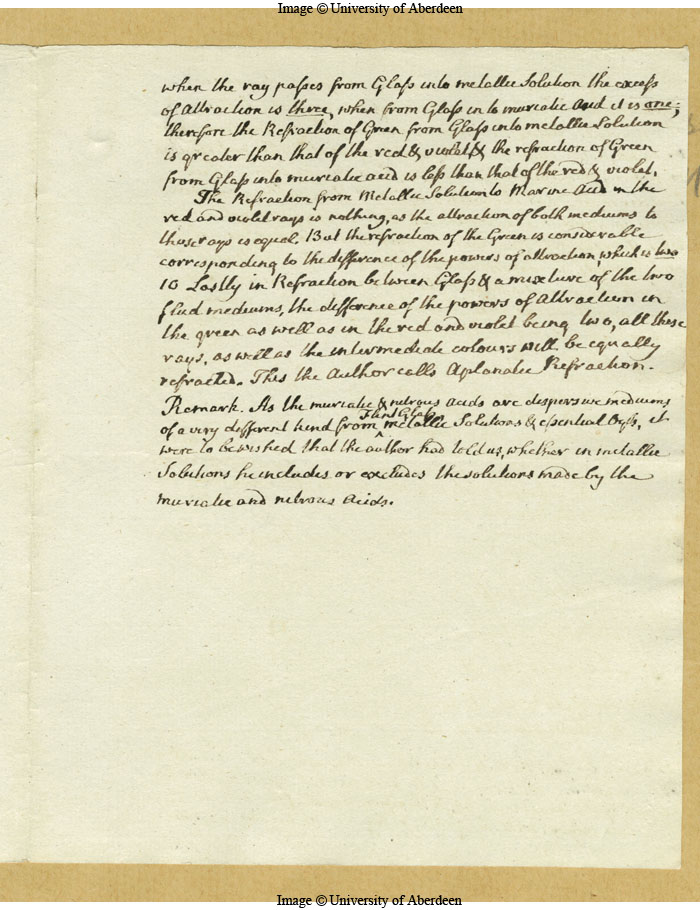 Image © University of Aberdeen
when the ray passes from Glass into metallic Solution the excess
of Attraction is three, when from Glass in to muriatic Acid it is one;
therefore the Refraction of Green from Glass into metallic Solution
is greater than that of the red & violet & the refraction of Green
from Glass into muriatic acid is less than that of the red & violet.
The Refraction from Metallic Solution to Marine Acid in the
red and violet rays is nothing, as the attraction of both mediums to
those rays is equal. But the refraction of the Green is considerable
corresponding to the difference of the powers of attraction, which is two
10 Lastly in Refraction between Glass & a mixture of the two
fluid mediums, the difference of the powers of Attraction in
the green as well as in the red and violet being two, all these
rays, as well as the intermediate colours will be equally
refracted. This the Author calls Aplanatic Refraction.
Remark. As the muriatic & nitrous acids are dispersive mediums
Flint Glass
of a very different kind from metallic Solutions & essential Oyls, it
were to be wished that the author had told us, whether in metallic
Solutions he includes or excludes the solutions made by the
muriatic and nitrous Acids.
Image © University of Aberdeen